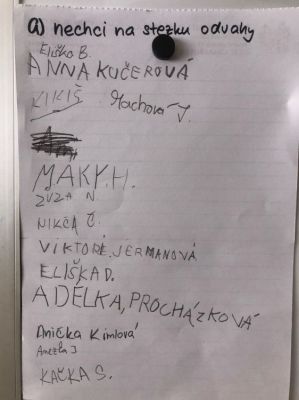 a) nechci na stezku odvahy
Eliška B.
ANNA KUČEROVÁ
KIKIŠ Machová J.
MAKY.H.
ZUZA N
NIKČA Č.
VIKTORÉ.JERMANOVÁ
ELIŠKA D.
ADÉLKA,PROCHÁZKOVÁ
Anička Kimlová
Anežka J
KAČKA S.